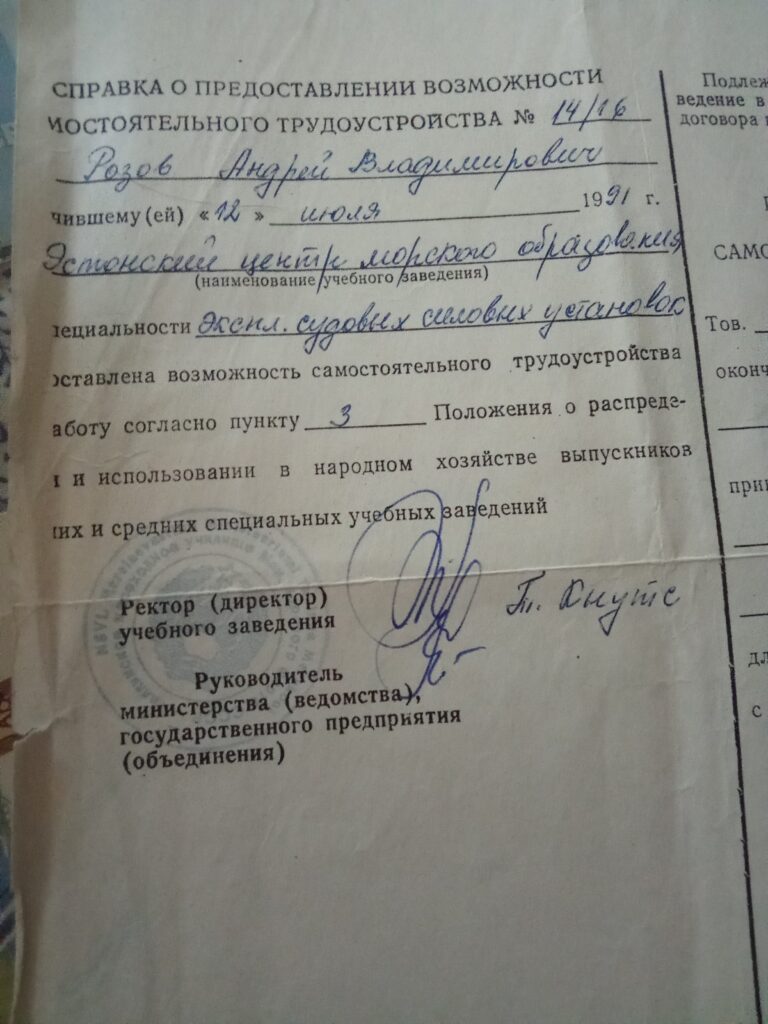 СПРАВКА О ПРЕДОСТАВЛЕНИИ ВОЗМОЖНОСТИ
МОСТОЯТЕЛЬНОГО ТРУДОУСТРОЙСТВА № 14/16
Розов Андрей Владимирович
чившему(ей) «12» июля 1991 г.
Эстонский центр морского образования
(наименование учебного заведения)
пециальности экспл. судовых силовых установок
оставлена возможность самостоятельного трудоустройства
аботу согласно пункту 3 Положения о распреде-
и и использовании в народном хозяйстве выпускников
их и средних специальных учебных заведений
Ректор (директор)
учебного заведения
Т. Кнутс
Руководитель
министерства (ведомства),
государственного предприятия
(объединения)
Подлеж
ведение в
договора
САМО
Тов.
оконч
при
дл
с